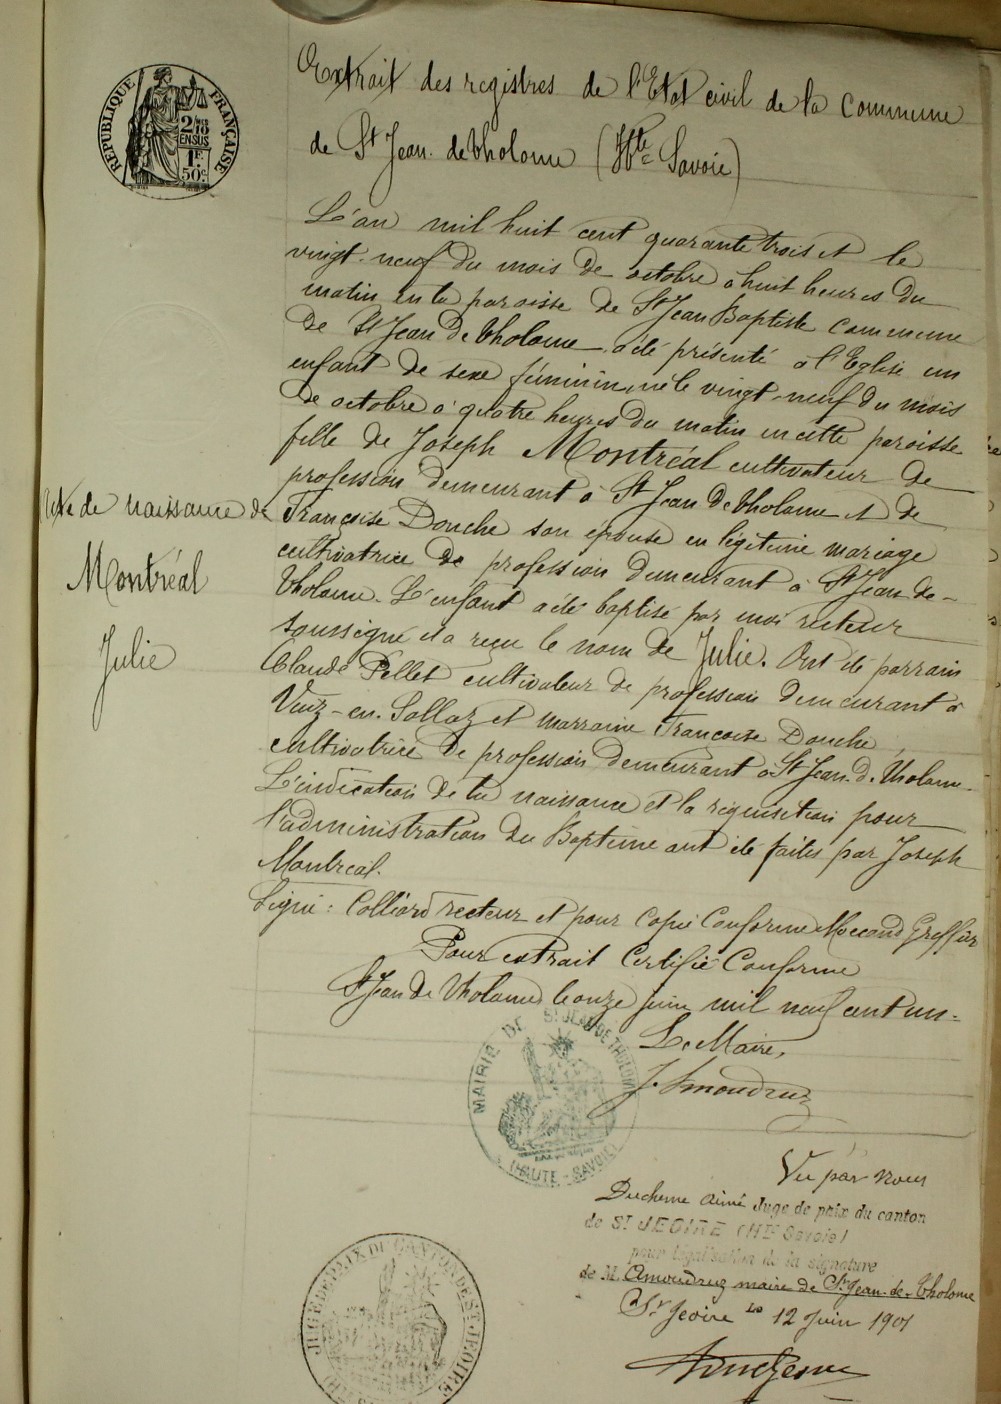 RÉPUBLIQUE FRANÇAISE
2/10 EN SUS
1F.
50c
Extrait des registres de l'Etat civil de la commune
de St Jean de Tholome (Hte Savoie)
L'an mil huit cent quarante trois et le
vingt-neuf du mois de octobre à huit heures du
matin en la paroisse de St Jean Baptiste commune
de St Jean de Tholome a été présenté à l'Eglise un
enfant de sexe féminin, né le vingt-neuf du mois
de octobre à quatre heures du matin en cette paroisse
fille de Joseph Montréal cultivateur de
profession demeurant à St Jean de Tholome et de
Françoise Douche son épouse en légitime mariage
cultivatrice de profession demeurant à St Jean de-
Tholome. L'enfant a été baptisé par moi recteur
soussigné et a reçu le nom de Julie. Ont été parrain
Claude Pellet cultivateur de profession demeurant à
Viuz-en-Sallaz et marraine Françoise Douche,
cultivatrice de profession demeurant à St Jean d. Tholome.
L'indication de la naissance et la réquisition pour
l'administration du Baptême ont été faites par Joseph
Montréal.
Signé: Colliard recteur et pour copie conforme Greffier
Pour extrait Certifié Conforme
St Jean de Tholome le onze juin mil neuf cent un.
Le Maire,
J. Amoudruz
Acte de naissance de
Montréal
Julie
MAIRIE DE ST JEAN DE THOLOME
(HAUTE-SAVOIE)
Vu par nous
Duchesne Aimé Juge de paix du canton
de ST JEOIRE (Hte Savoie)
pour légalisation de la signature
de M. Amoudruz maire de St Jean-de-Tholome
St Jeoire Le 12 Juin 1901
Duchesne
JUGE DE PAIX DU CANTON DE ST JEOIRE